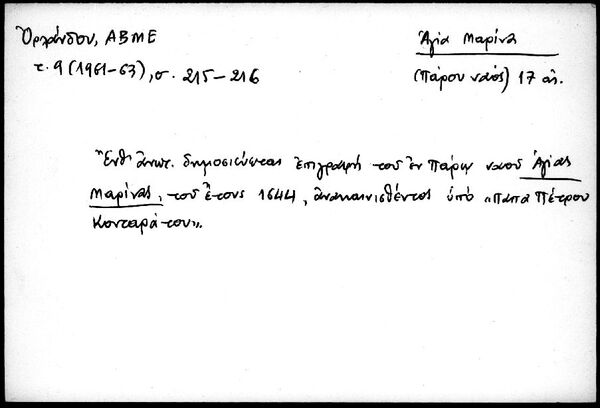 Ὀρλάνδου, ΑΒΜΕ
Ἁγία Μαρίνα
τ. 9 (1961-63), σ. 215-216
(Πάρου ναός) 17 αἰ.
Ἔνθ' ἀνωτ. δημοσιεύεται ἐπιγραφή τοῦ ἐν Πάρῳ ναοῦ Ἁγίας
Μαρίνας, τοῦ ἔτους 1644, ἀνακαινισθέντος ὑπό «Παπα Πέτρου
Κονταράτου».